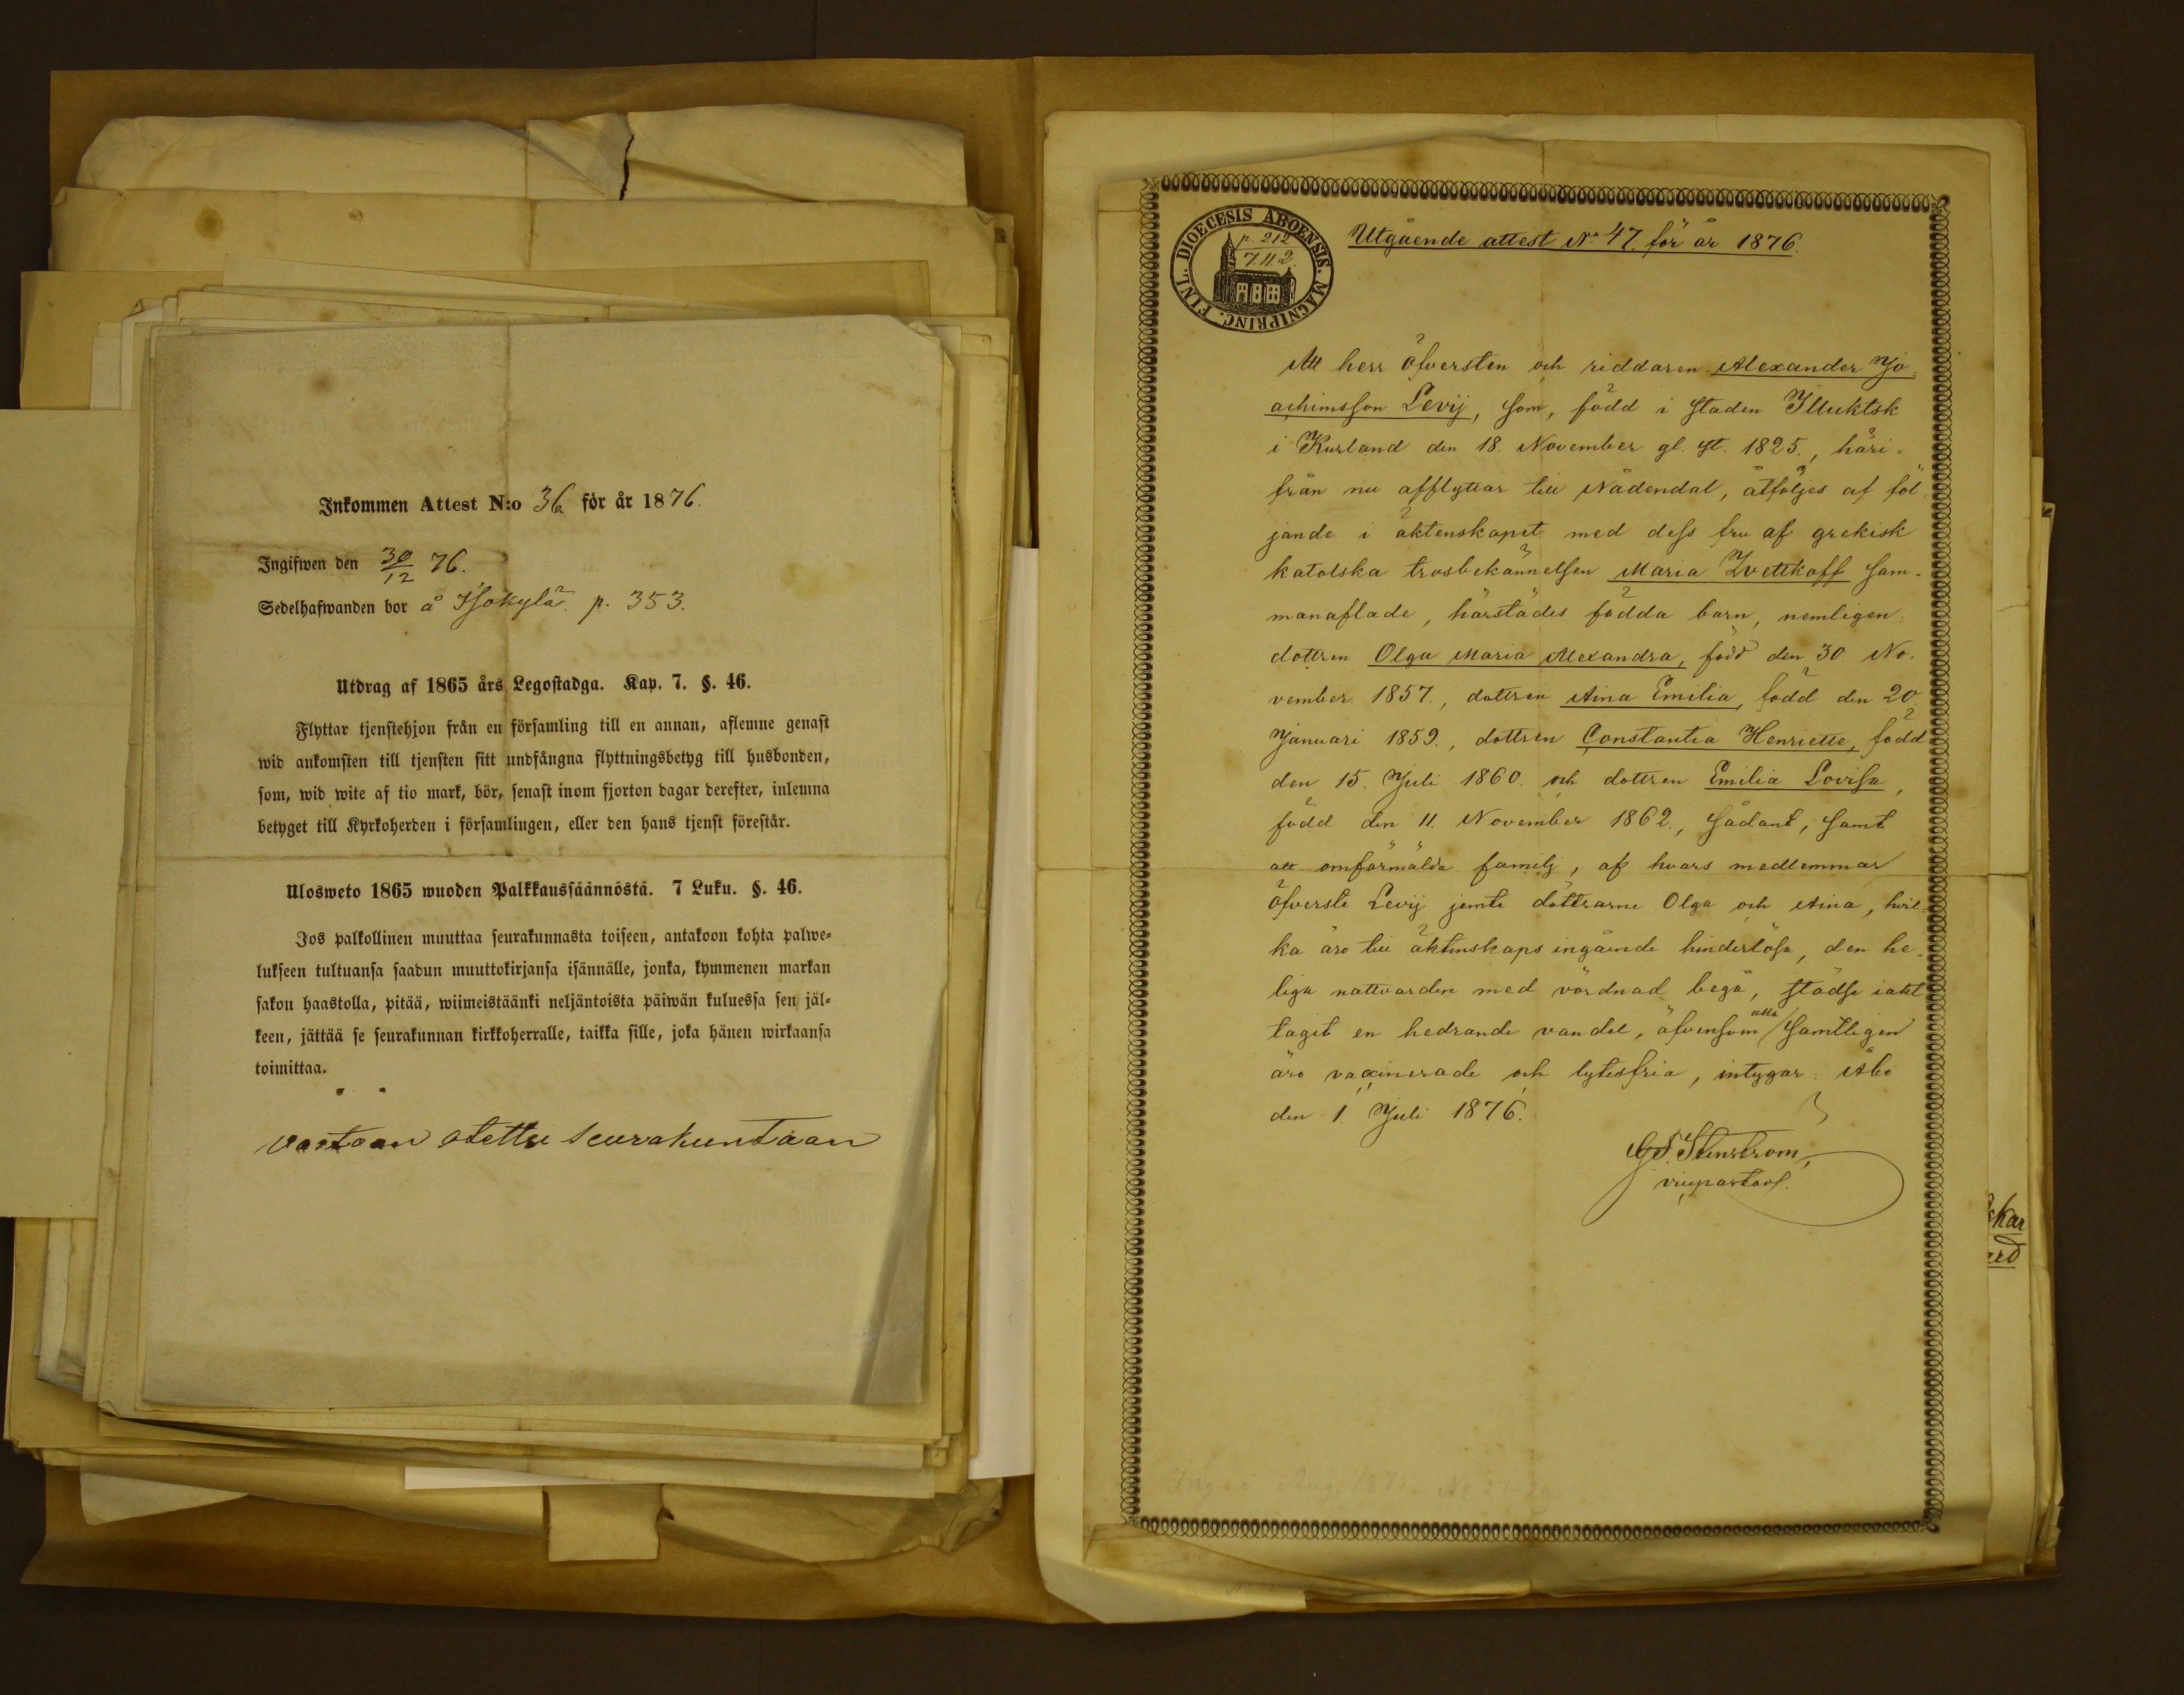 Inkommen Attest N:o 36 för år 1876.
Ingifwen den 30/12 76.
Sedelhafwanden bor å Isokylä. p. 353.
Utdrag af 1865 års Legostadga. Kap. 7. §. 46.
Flyttar tjenstehjon från en församling till en annan, aflemne genast
wid ankomsten till tjensten sitt undfångna flyttningsbetyg till husbonden,
som, wid wite af tio mark, bör, senast inom fjorton dagar derefter, inlemna
betyget till Kyrkoherden i församlingen, eller den hans tjenst förestår.
Ulosweto 1865 wuoden Palkkaussäännöstä. 7 Luku. §. 46.
Jos palkollinen muuttaa seurakunnasta toiseen, antakoon kohta palwe-
lukseen tultuansa saadun muuttokirjansa isännälle, jonka, kymmenen markan
sakon haastolla, pitää, wiimeistäänki neljäntoista päiwän kuluessa sen jäl-
keen, jättää se seurakunnan kirkkoherralle, taikka sille, joka hänen wirkaansa
toimittaa.
vastaan otettu seurakuntaan
FINL. DIOECESIS ABOENSIS. MAGNIPRINC.
p. 212
7.11.2.
Utgående attest No 47 för år 1876.
Att herr öfversten och riddaren Alexander Jo-
achimsson Levij, som, född i staden Illuktsk
i Kurland den 18. November gl. st. 1825., häri-
från nu afflyttar till Nådendal, åtföljes af föl-
jande i äktenskapet med dess fru af grekisk
katolska trosbekännelsen Maria Zvettkoff sam-
manaflade, härstädes födda barn, nemligen
dottren Olga Maria Alexandra, född den 30 No-
vember 1857., dottren Aina Emilia, född den 20
Januari 1859., dottren Constantia Henriette, född
den 15. Juli 1860. och dottren Emilia Lovisa,
född den 11. November 1862., sådant, samt
att omförmälda familj, af hvars medlemmar
öfverste Levij jemte döttrarne Olga och Aina, hvil-
ka äro till äktenskaps ingående hinderlösa, den he-
liga nattvarden med vördnad begå, städse iakt-
tagit en hedrande vandel, äfvensom alla samtligen
äro vaccinerade och lytesfria, intygar: Åbo
den 1 Juli 1876.
G. S. Stenström,
vicepastor.
Aug. 1875.
kar